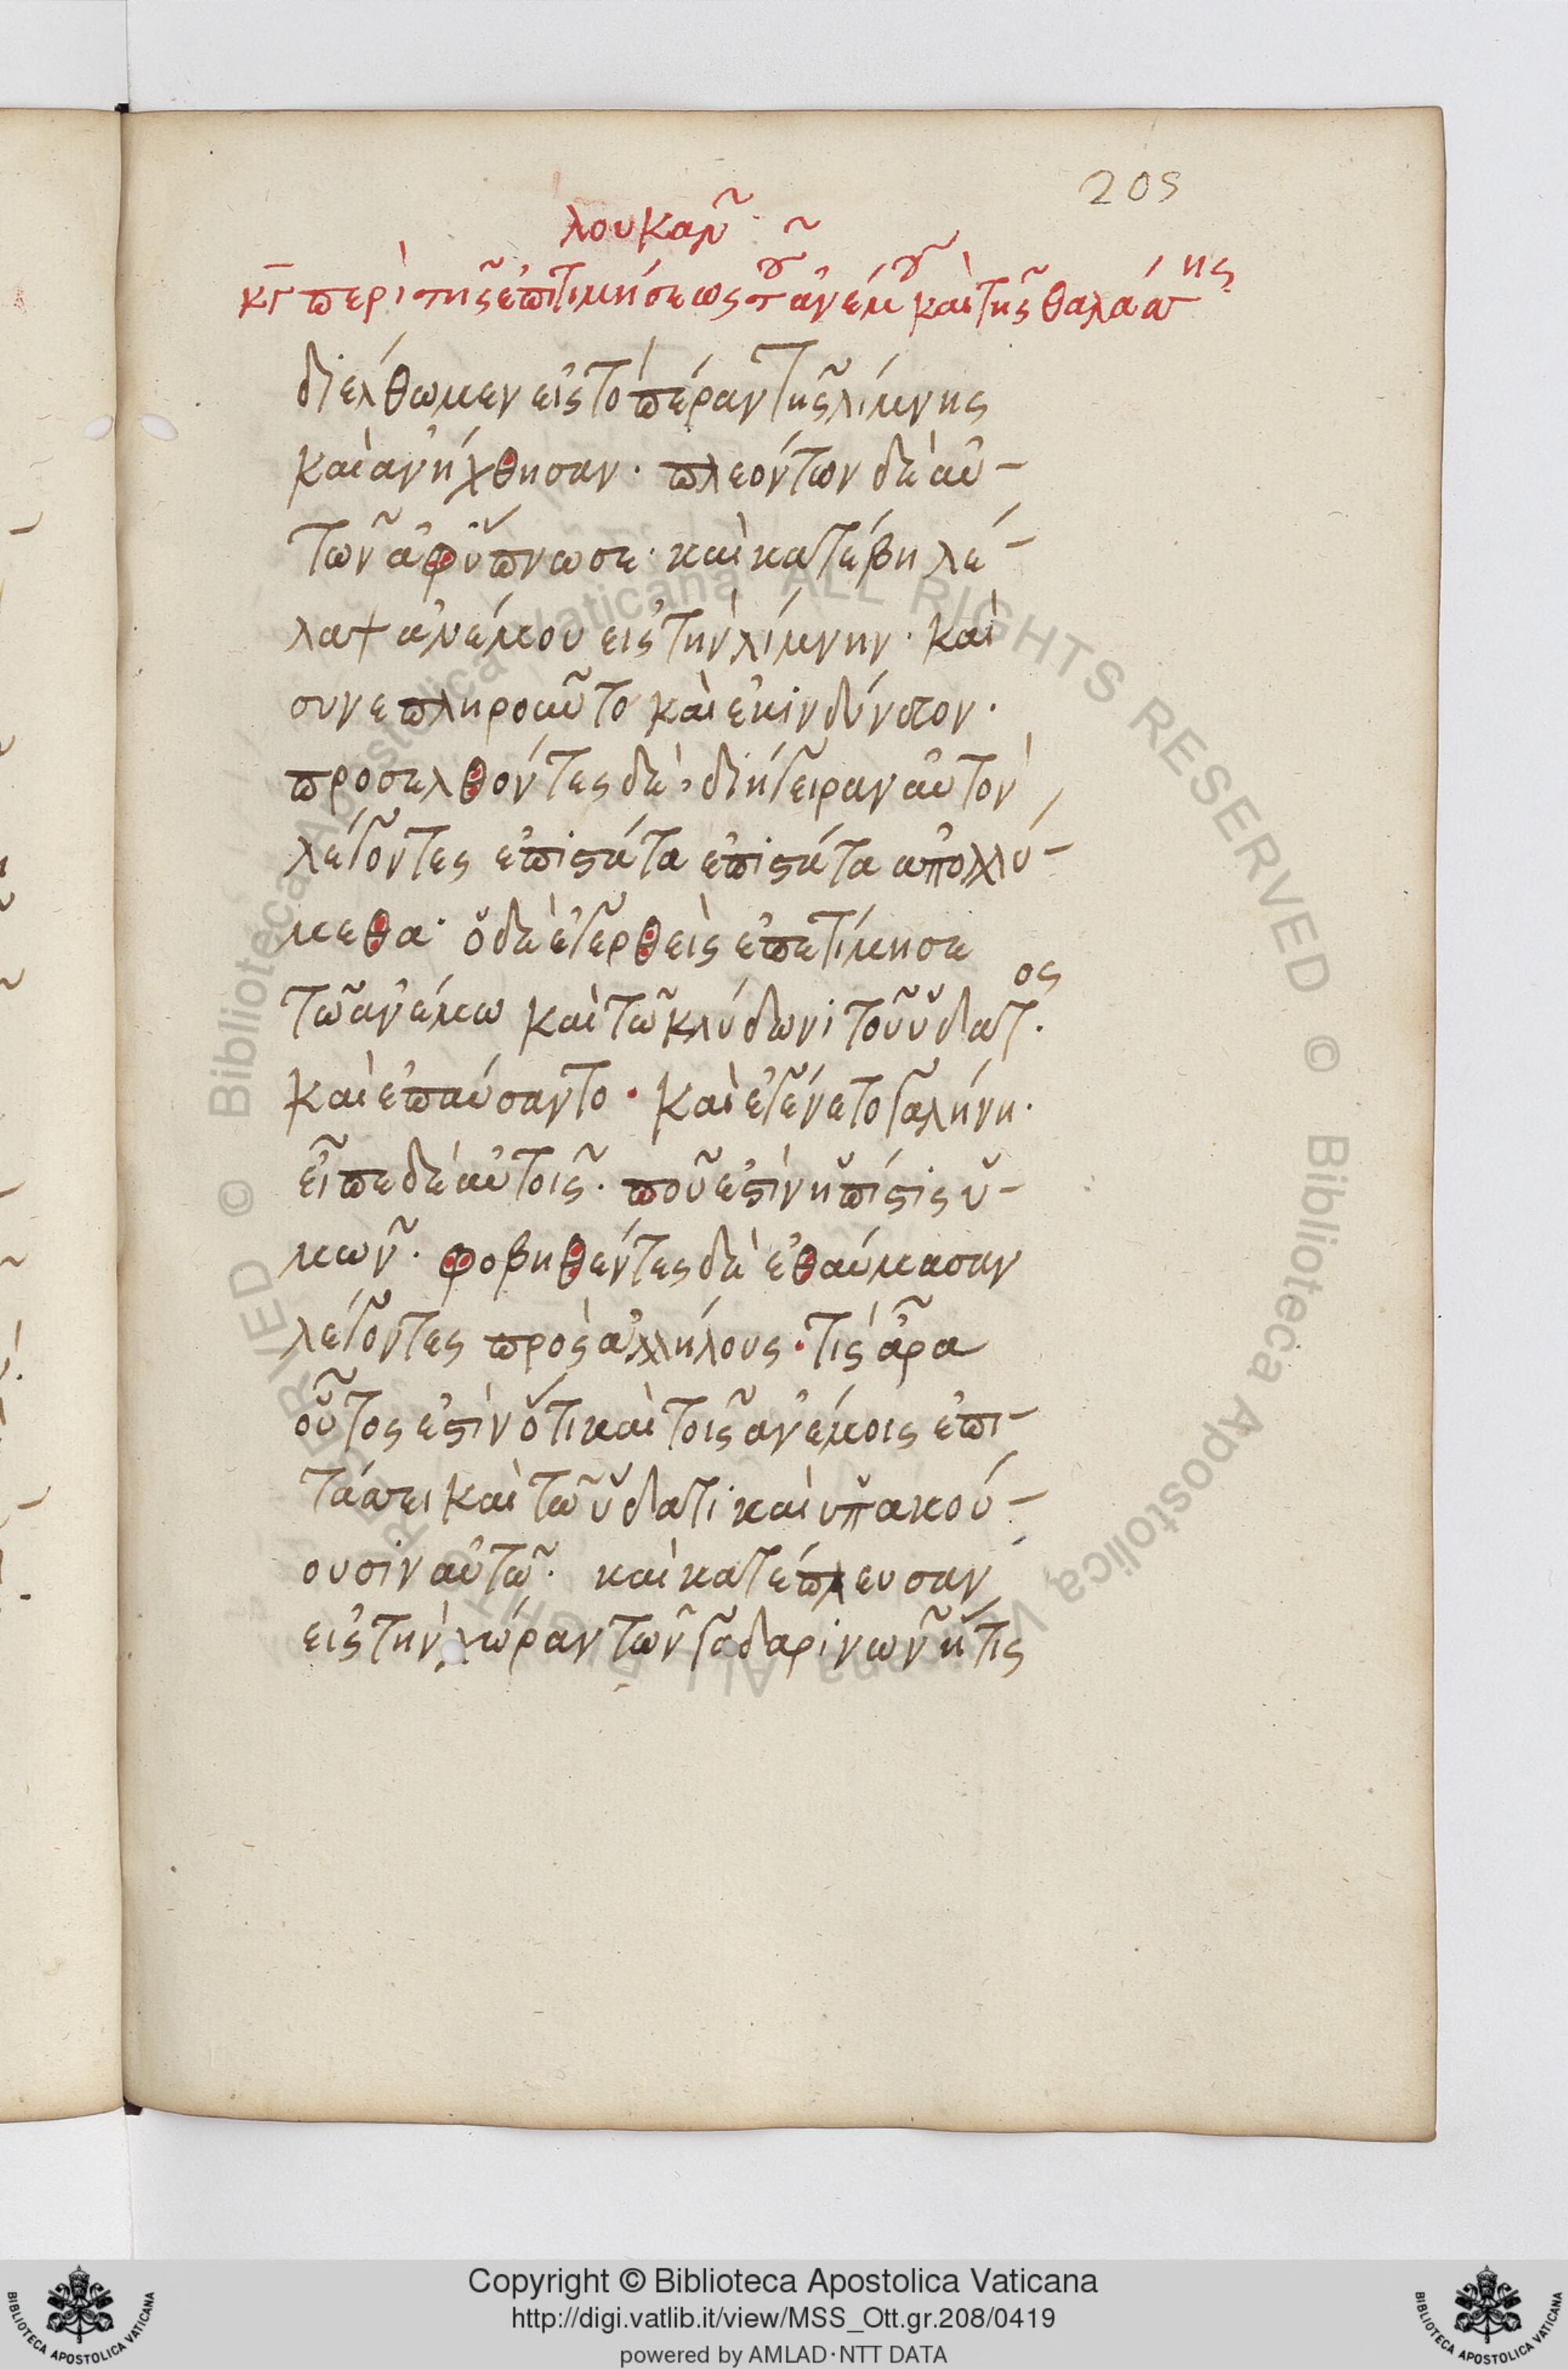 205
λουκαν῀
κγ περὶ τῆς ἐπιτιμήσεως τοῦ ἀνέμου καὶ τῆς θαλάσσης
διέλθωμεν εἰς τὸ πέραν τῆς λίμνης
καὶ ἀνήχθησαν· πλεόντων δὲ αὐ-
τῶν ἀφύπνωσε· καὶ κατέβη λέ-
λαψ ἀνέμου εἰς τὴν λίμνην· καὶ
συνεπληροῦντο καὶ ἐκινδύνευον·
προσελθόντες δὲ, διήγειραν αὐτὸν
λέγοντες ἐπιστάτα ἐπιστάτα ἀπολλύ-
μεθα· ὁ δὲ ἐγερθεὶς ἐπετίμησε
τῶ ἀνέμω καὶ τῶ κλύδωνι τοῦ ὕδατος·
καὶ ἐπαύσαντο· καὶ ἐγένετο γαλήνη·
εἶπε δὲ αὐτοῖς· ποῦ ἐστὶν ἡ πίστις ὑ-
μῶν· φοβηθέντες δὲ ἐθαύμασαν
λέγοντες πρὸς ἀλλήλους· τίς ἆρα
οὗτος ἐστὶν ὅτι καὶ τοῖς ἀνέμοις ἐπι-
τάσσει καὶ τῶ ὕδατι καὶ ὑπακού-
ουσιν αὐτῶ· καὶ κατέπλευσαν
εἰς τὴν χώραν τῶν γαδαρινῶν ἥτις
© Biblioteca Apostolica Vaticana ALL RIGHTS RESERVED © Biblioteca Apostolica Vaticana ALL RIGHTS RESERVED
BIBLIOTECA APOSTOLICA VATICANA
Copyright © Biblioteca Apostolica Vaticana
http://digi.vatlib.it/view/MSS_Ott.gr.208/0419
powered by AMLAD·NTT DATA
BIBLIOTECA APOSTOLICA VATICANA